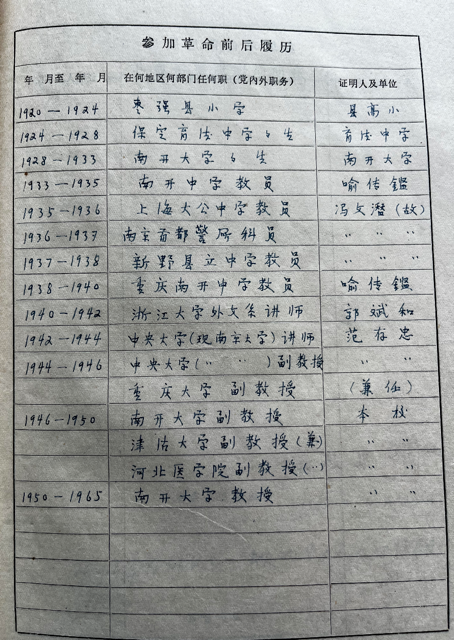 参加革命前后履历
年 月至 年 月 在何地区何部门任何职（党内外职务） 证明人及单位
1920—1924 枣强县小学 县高小
1924—1928 保定育德中学学生 育德中学
1928—1933 南开大学学生 南开大学
1933—1935 南开中学教员 喻传鑑
1935—1936 上海大公中学教员 冯文潜(故)
1936—1937 南京首都警厅科员 〃 〃 〃
1937—1938 新野县立中学教员 〃 〃 〃
1938—1940 重庆南开中学教员 喻传鑑
1940—1942 浙江大学外文系讲师 郭斌和
1942—1944 中央大学(现南京大学)讲师 范存忠
1944—1946 中央大学(〃 〃)副教授 〃 〃
重庆大学 副教授 (兼任)
1946—1950 南开大学副教授 本校
津沽大学副教授(兼) 〃 〃
河北医学院副教授(〃) 〃 〃
1950—1965 南开大学 教授 〃 〃